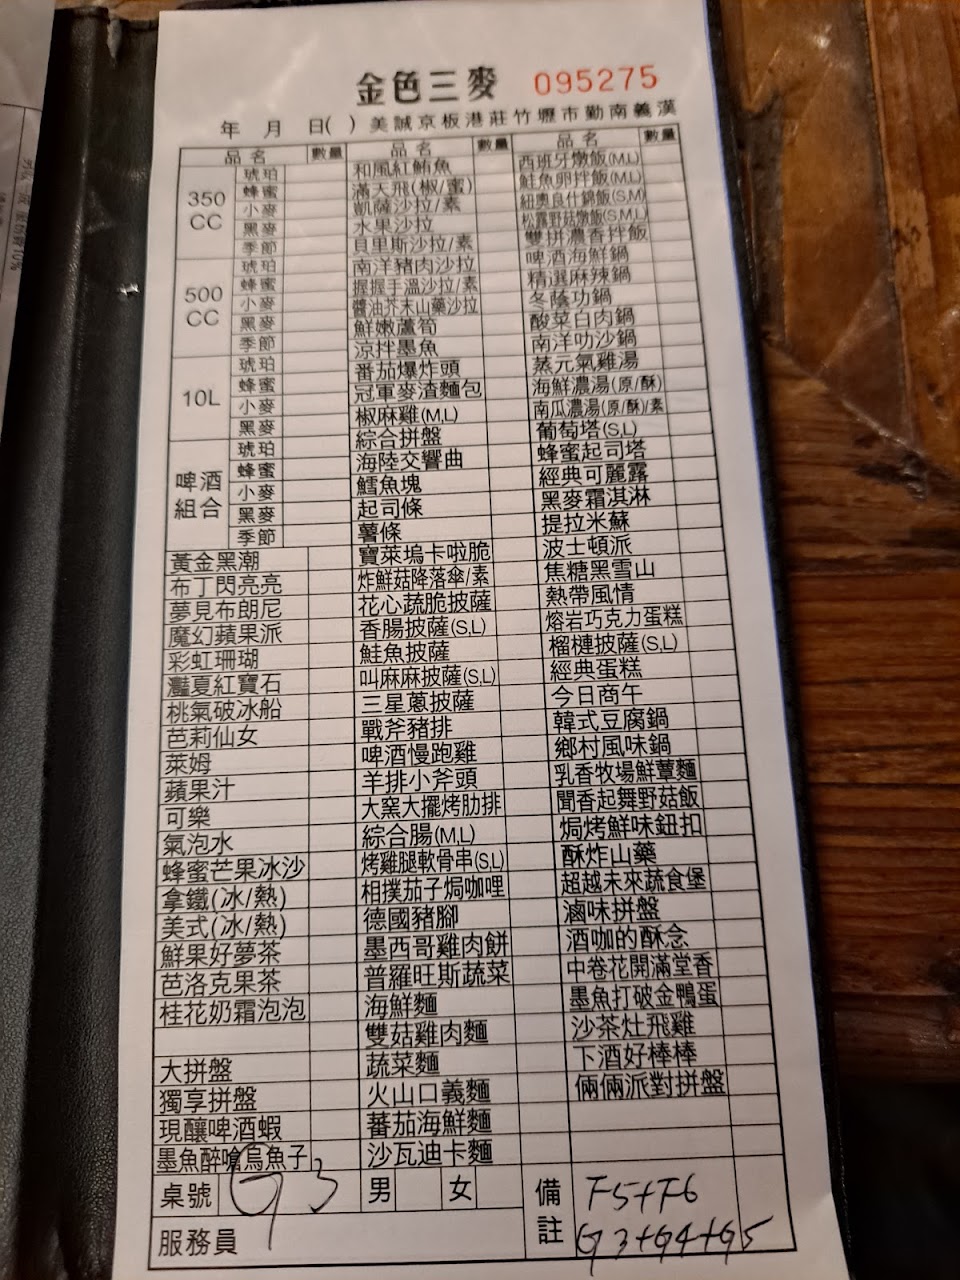 金色三麥 095275
年 月 日( ) 美誠京板港莊竹壢市勤南義漢
品名 數量 品名 數量 品名 數量
350CC
琥珀
蜂蜜
小麥
黑麥
季節
500CC
琥珀
蜂蜜
小麥
黑麥
季節
10L
琥珀
蜂蜜
小麥
黑麥
啤酒組合
琥珀
蜂蜜
小麥
黑麥
季節
黃金黑潮
布丁閃亮亮
夢見布朗尼
魔幻蘋果派
彩虹珊瑚
灩夏紅寶石
桃氣破冰船
芭莉仙女
萊姆
蘋果汁
可樂
氣泡水
蜂蜜芒果冰沙
拿鐵(冰/熱)
美式(冰/熱)
鮮果好夢茶
芭洛克果茶
桂花奶霜泡泡
大拼盤
獨享拼盤
現釀啤酒蝦
墨魚醉嗆烏魚子
和風紅鮪魚
滿天飛(椒/蜜)
凱薩沙拉/素
水果沙拉
貝里斯沙拉/素
南洋豬肉沙拉
握握手溫沙拉/素
醬油芥末山藥沙拉
鮮嫩蘆筍
涼拌墨魚
番茄爆炸頭
冠軍麥渣麵包
椒麻雞(M,L)
綜合拼盤
海陸交響曲
鱈魚塊
起司條
薯條
寶萊塢卡啦脆
炸鮮菇降落傘/素
花心蔬脆披薩
香腸披薩(S,L)
鮭魚披薩
叫麻麻披薩(S,L)
三星蔥披薩
戰斧豬排
啤酒慢跑雞
羊排小斧頭
大窯大擺烤肋排
綜合腸(M,L)
烤雞腿軟骨串(S,L)
相撲茄子焗咖哩
德國豬腳
墨西哥雞肉餅
普羅旺斯蔬菜
海鮮麵
雙菇雞肉麵
蔬菜麵
火山口義麵
蕃茄海鮮麵
沙瓦迪卡麵
西班牙燉飯(M,L)
鮭魚卵拌飯(M,L)
紐奧良什錦飯(S,M)
松露野菇燉飯(S,M,L)
雙拼濃香拌飯
啤酒海鮮鍋
精選麻辣鍋
冬蔭功鍋
酸菜白肉鍋
南洋叻沙鍋
蒸元氣雞湯
海鮮濃湯(原/酥)
南瓜濃湯(原/酥)/素
葡萄塔(S,L)
蜂蜜起司塔
經典可麗露
黑麥霜淇淋
提拉米蘇
波士頓派
焦糖黑雪山
熱帶風情
熔岩巧克力蛋糕
榴槤披薩(S,L)
經典蛋糕
今日商午
韓式豆腐鍋
鄉村風味鍋
乳香牧場鮮蕈麵
聞香起舞野菇飯
焗烤鮮味鈕扣
酥炸山藥
超越未來蔬食堡
滷味拼盤
酒咖的酥念
中卷花開滿堂香
墨魚打破金鴨蛋
沙茶灶飛雞
下酒好棒棒
倆倆派對拼盤
桌號 G3 男 女
服務員
備註 F5+F6
G3+G4+G5